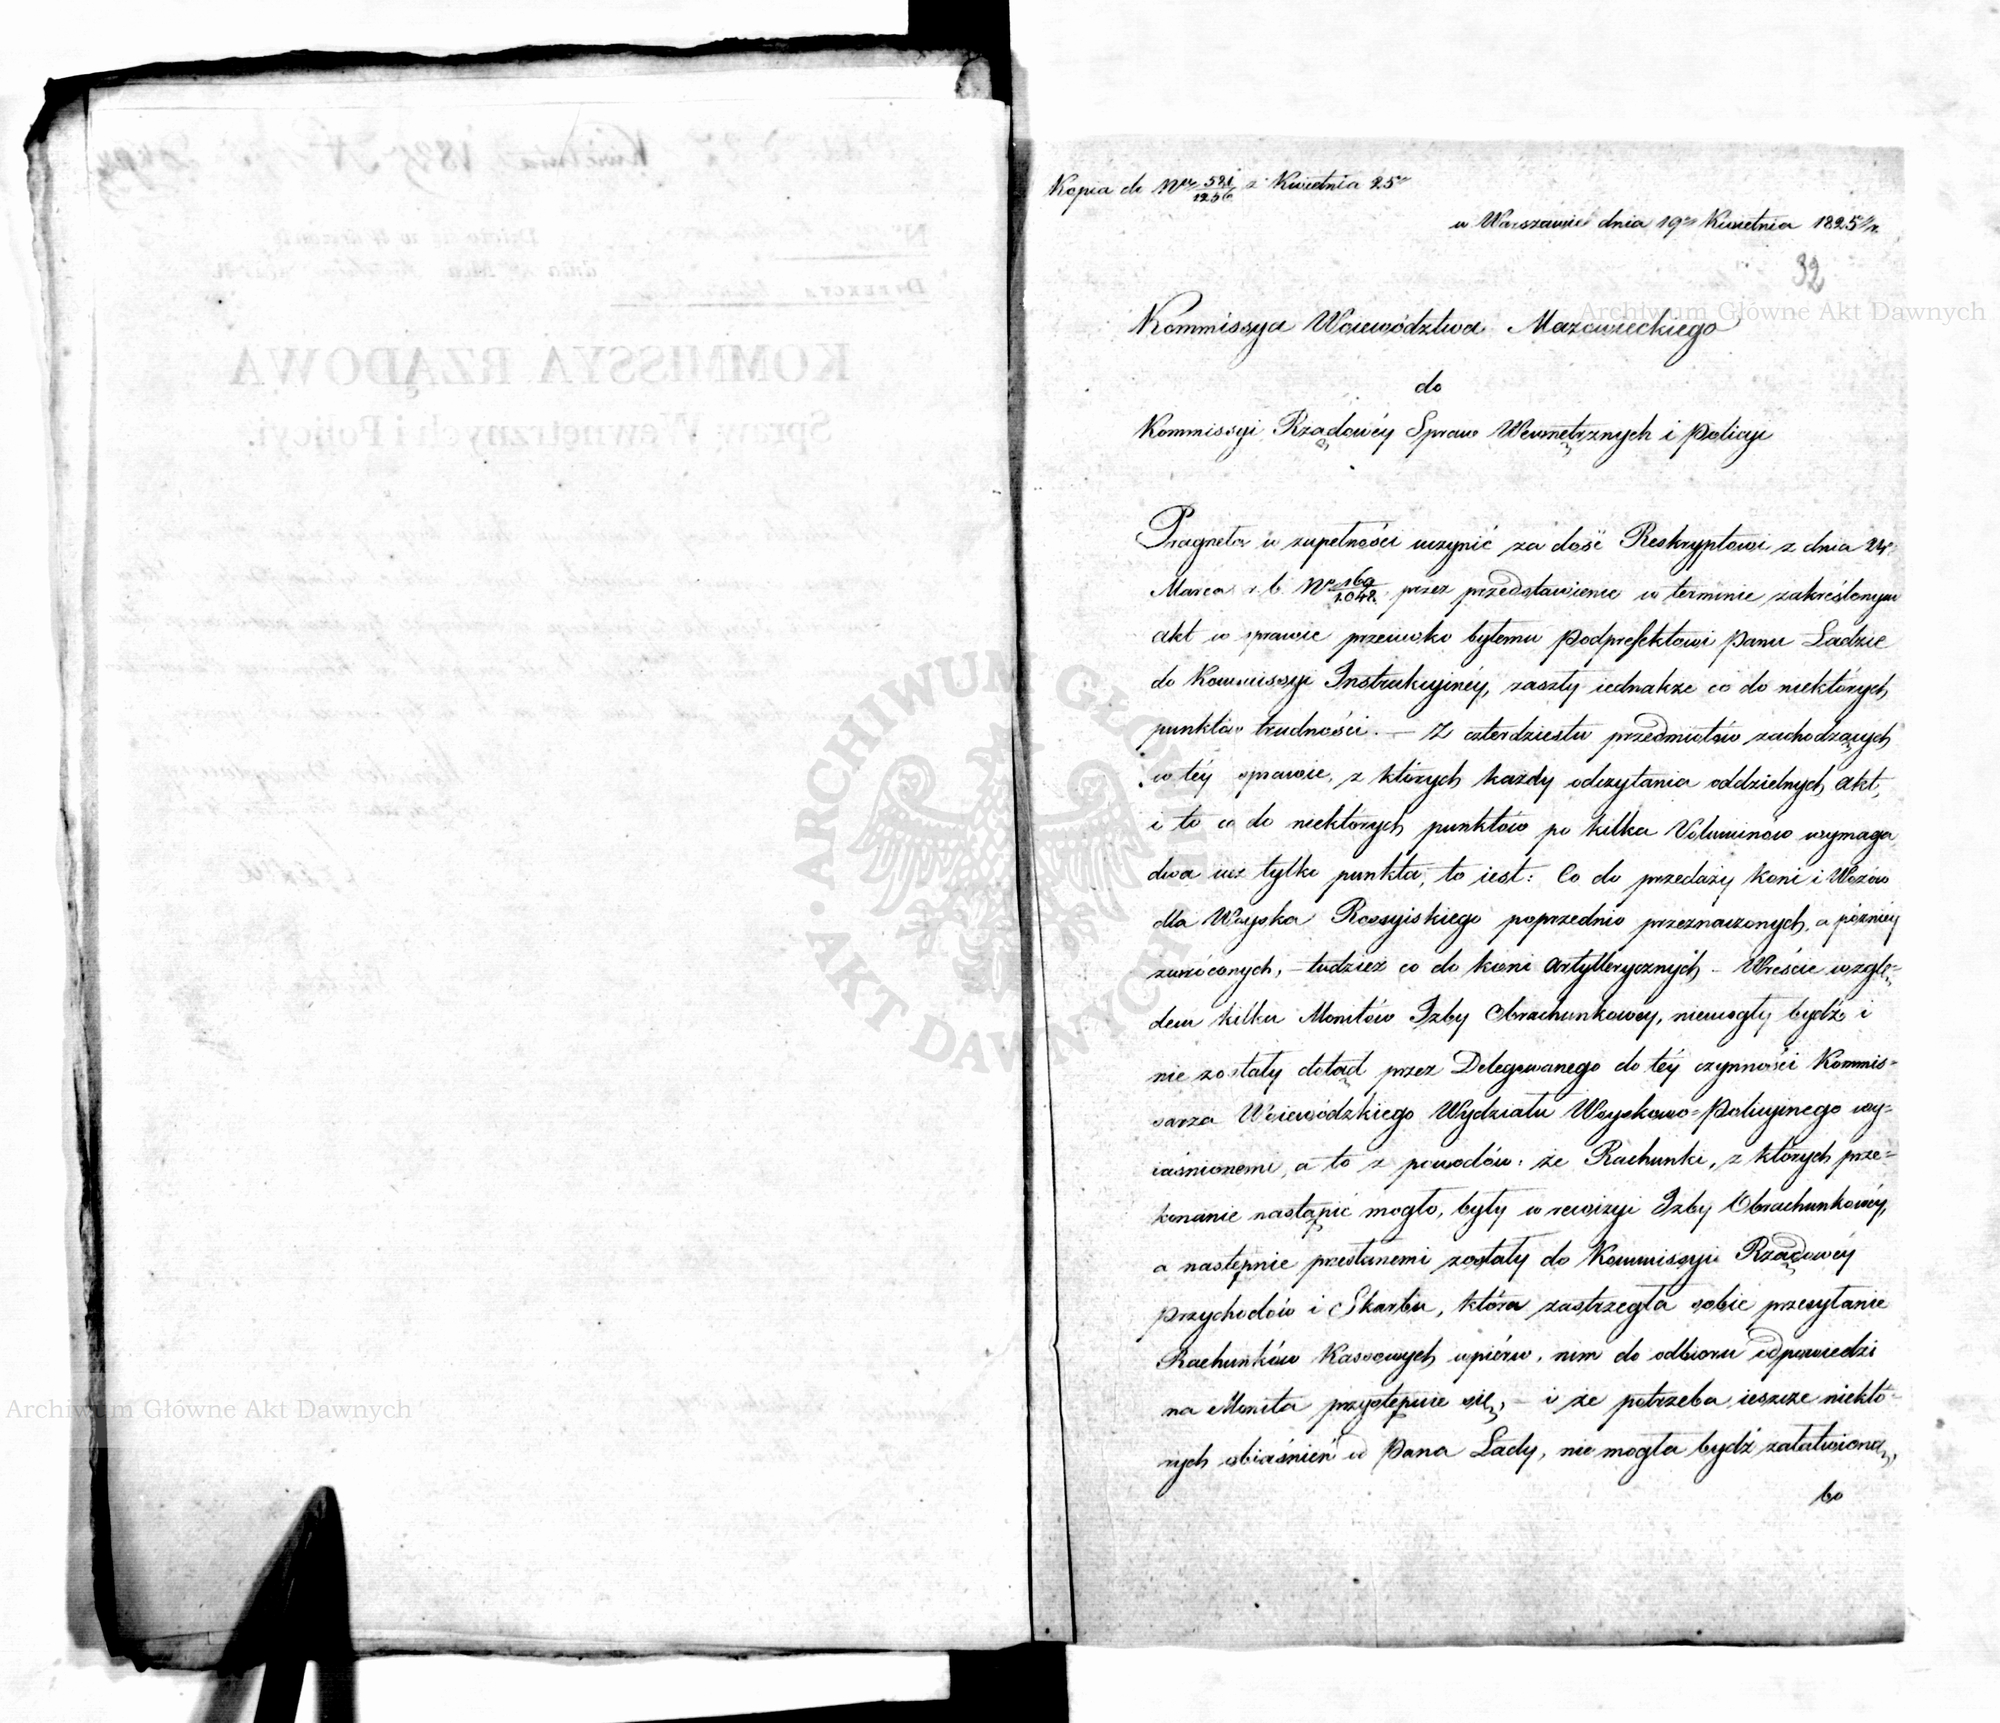 Kopia do Nru 521/1256 z Kwietnia 25r
w Warszawie dnia 19go Kwietnia 1825 r.
32
Kommissya Woiewództwa Mazowieckiego
do
Kommissyi Rządowéy Spraw Wewnętrznych i Policyi
Pragnęła w zupełności uczynić za dość Reskryptowi z dnia 24
Marca r. b. Nro 169/2042 przez przedstawienie w terminie zakreślonym
akt w sprawie przeciwko byłemu Podprefektowi Panu Ladzie
do Kommissyi Instrukcyinéy, zaszły iednakże co do niektórych
punktów trudności. — Z czterdziestu przedmiotów zachodzących
w téy sprawie, z których każdy odczytania oddzielnych akt,
i to co do niektórych punktów po kilka Voluminów wymaga
dwa iuż tylko punkta, to iest: Co do przedaży koni i Wozów
dla Woyska Rossyiskiego poprzednio przeznaczonych, a późniey
zwróconych, — tudzież co do koni Artylleryczných — Wreście wzglę=
dem kilku Monitów Izby Obrachunkowey, niemogły bydź i
nie zostały dotąd przez Delegowanego do téy czynności Kommis=
sarza Woiewódzkiego Wydziału Woyskowo=Policyinego wy=
iaśnionemi, a to z powodów: że Rachunki, z których prze=
konanie nastąpić mogło, były w rewizyi Izby Obrachunkowéy,
a następnie przesłanemi zostały do Kommissyi Rządowéy
Przychodów i Skarbu, która zastrzegła sobie przesyłanie
Rachunków Kassowych wpiérw, nim do odbioru odpowiedzi
na Monita przystępuie się, — i że potrzeba ieszcze niektó=
rych obiaśnień od Pana Lady, nie mogła bydź załatwioną,
bo
KOMMISSYA RZĄDOWA
Spraw Wewnętrznych i Policyi.
Archiwum Główne Akt Dawnych
Archiwum Główne Akt Dawnych
ARCHIWUM GŁÓWNE AKT DAWNYCH